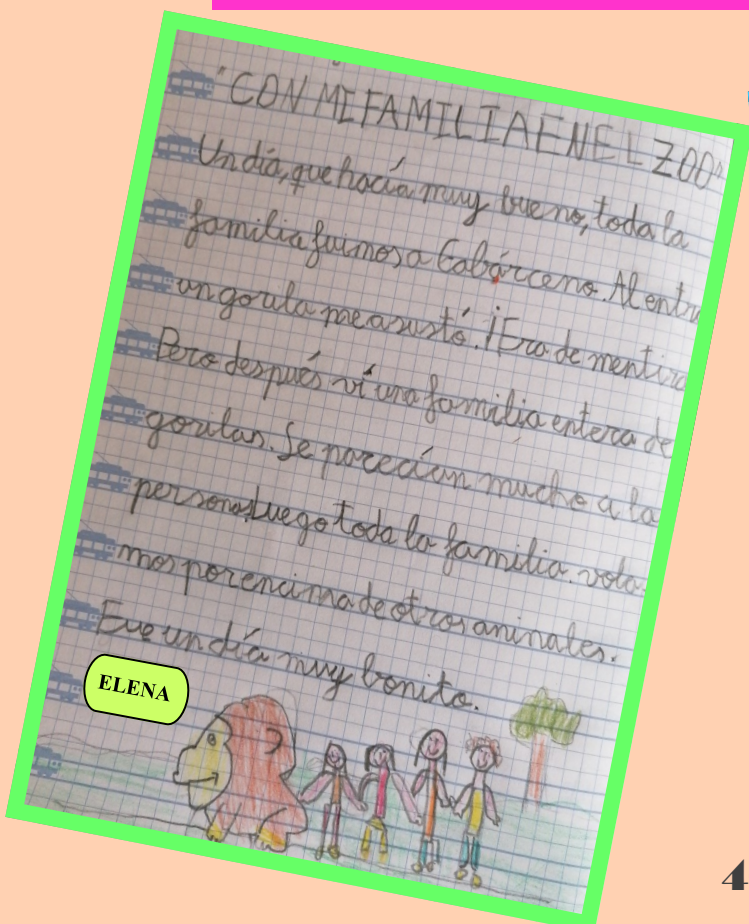 "CON MI FAMILIA EN EL ZOO"
Un día, que hacía muy bueno, toda la
familia fuimos a Cabárceno. Al entr
un gorila me asustó. ¡Era de mentira
Pero después ví una familia entera de
gorilas. Se parecían mucho a la
personas. Luego toda la familia vola-
mos por encima de otros animales.
Fue un día muy bonito.
ELENA
4